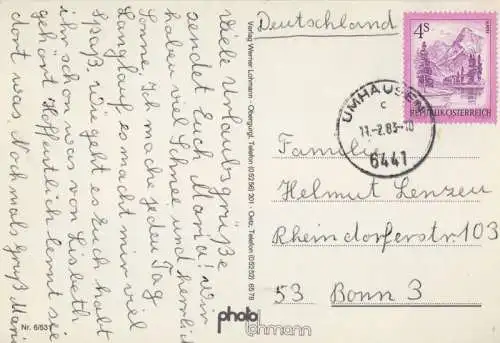 Deutschland
Viele Urlaubsgrüße
sendet Euch Maria! Wir
haben viel Schnee und herrlich
Sonne. Ich mache jeden Tag
Langlauf es macht mir viel
Spaß. Wie geht es Euch habt
ihr schon was von Lisbeth
gehört Hoffentlich lernt sie
dort was. Nochmals Gruß Maria
Verlag Werner Lohmann - Obergurgl, Telefon (0 52 56) 301 - Oetz, Telefon (0 52 52) 65 78
4S
REPUBLIK ÖSTERREICH
UMHAUSEN
c
11.-2.83-10
6441
Familie
Helmut Lenzen
Rheindorferstr 103
53 Bonn 3
Nr. 6/831
photo
lohmann